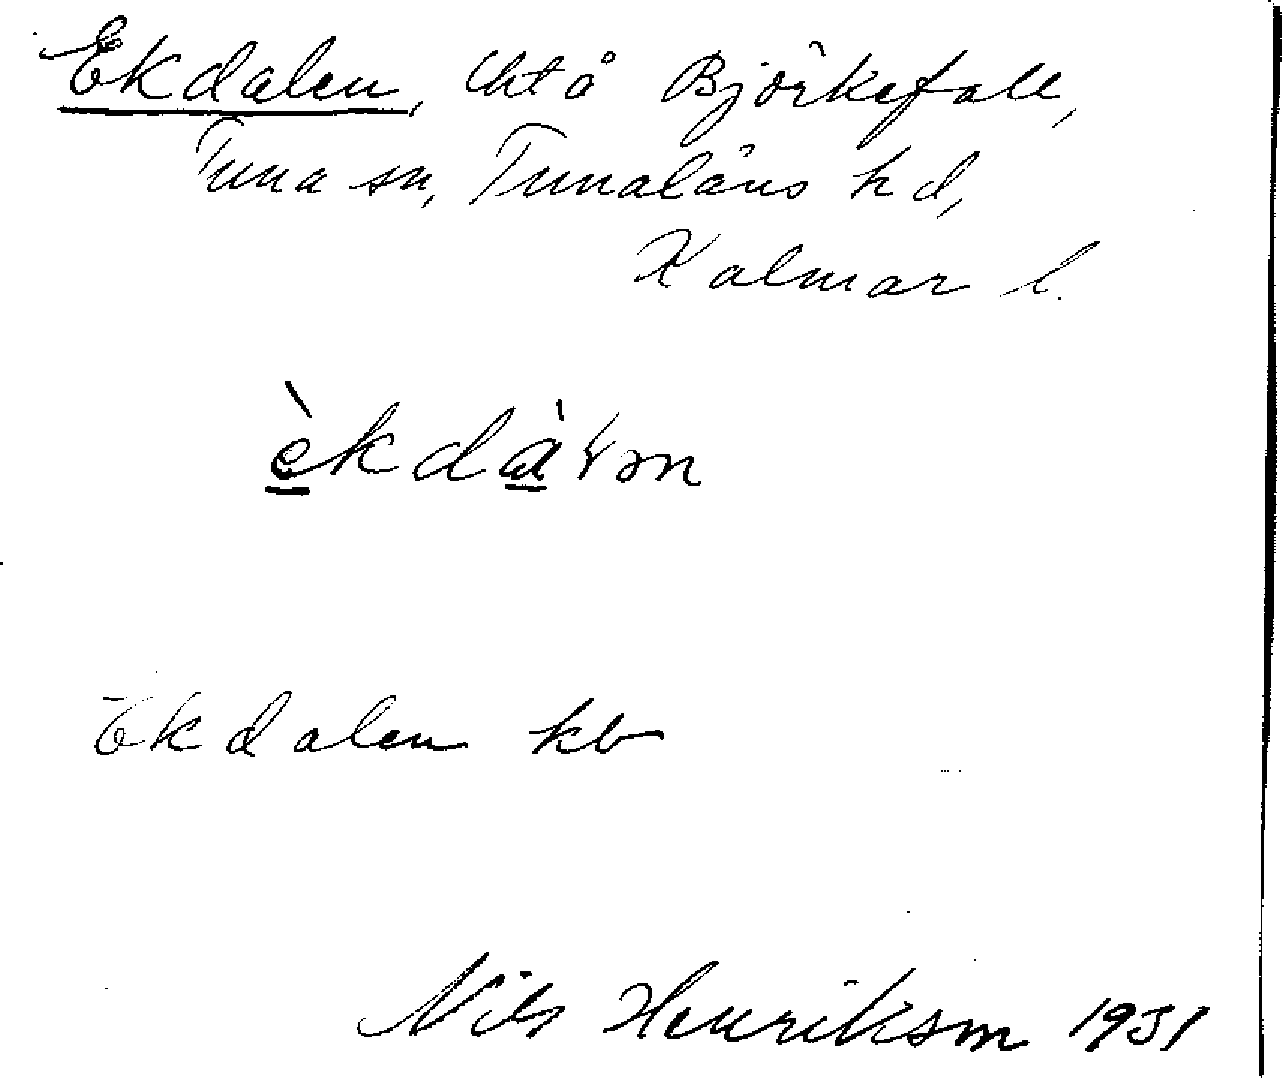 Ekdalen, lht å Björkefall,
Tuna sn, Tunaläns hd,
Kalmar l.
Ekdalen kb
Nils Henriksson 1931